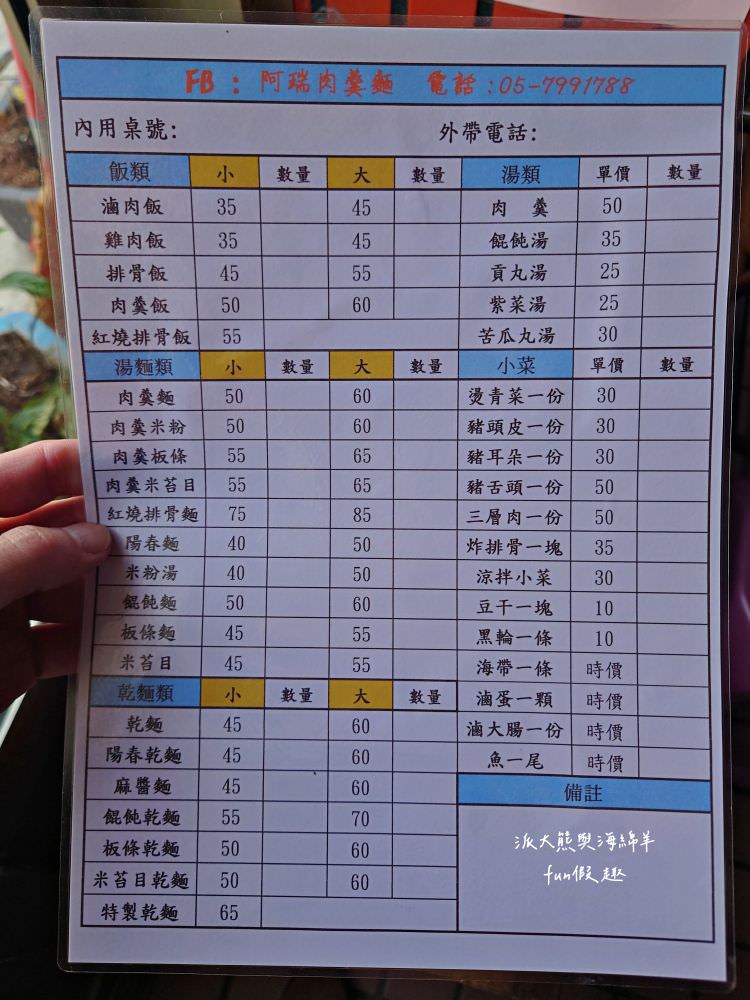 FB : 阿瑞肉羹麵 電話:05-7991788
內用桌號: 外帶電話:
飯類 小 數量 大 數量 湯類 單價 數量
滷肉飯 35 45 肉 羹 50
雞肉飯 35 45 餛飩湯 35
排骨飯 45 55 貢丸湯 25
肉羹飯 50 60 紫菜湯 25
紅燒排骨飯 55 苦瓜丸湯 30
湯麵類 小 數量 大 數量 小菜 單價 數量
肉羹麵 50 60 燙青菜一份 30
肉羹米粉 50 60 豬頭皮一份 30
肉羹板條 55 65 豬耳朵一份 30
肉羹米苔目 55 65 豬舌頭一份 50
紅燒排骨麵 75 85 三層肉一份 50
陽春麵 40 50 炸排骨一塊 35
米粉湯 40 50 涼拌小菜 30
餛飩麵 50 60 豆干一塊 10
板條麵 45 55 黑輪一條 10
米苔目 45 55 海帶一條 時價
乾麵類 小 數量 大 數量 滷蛋一顆 時價
乾麵 45 60 滷大腸一份 時價
陽春乾麵 45 60 魚一尾 時價
麻醬麵 45 60 備註
餛飩乾麵 55 70
板條乾麵 50 60 派大熊與海綿羊
米苔目乾麵 50 60 fun假趣
特製乾麵 65